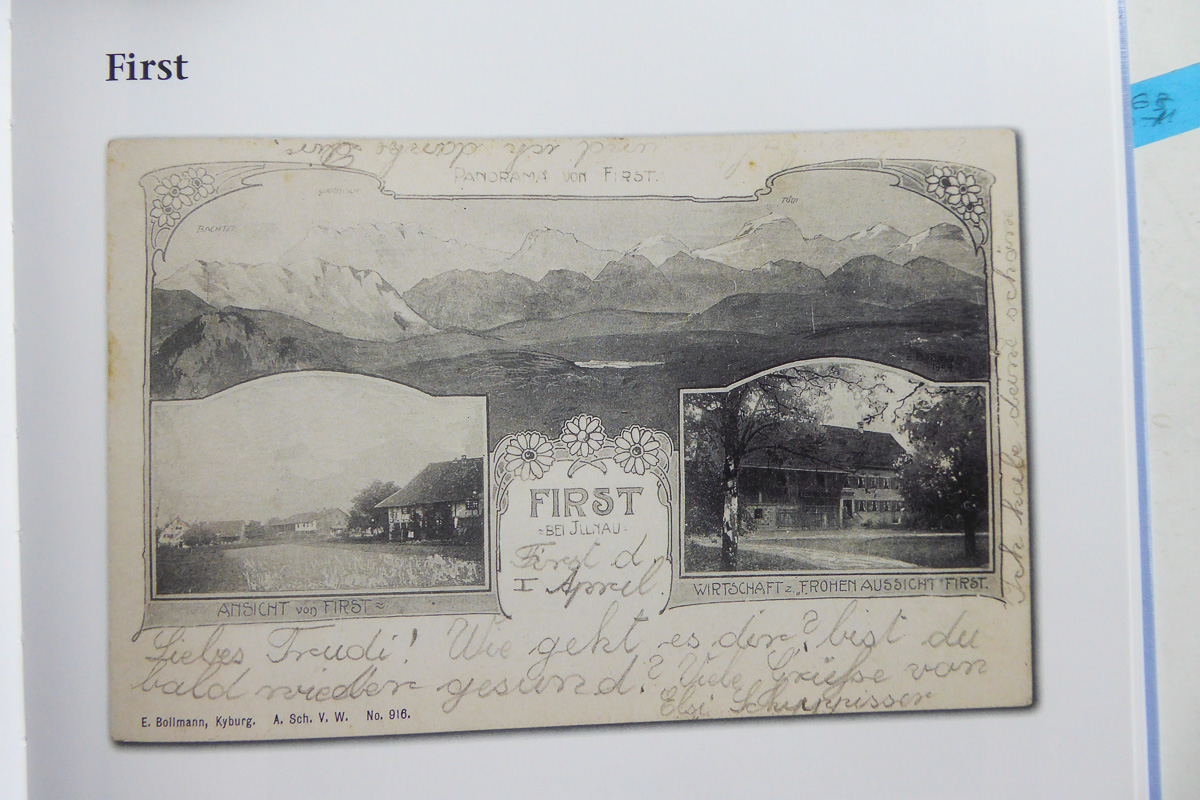 First
PANORAMA VON FIRST.
BACHTEL
TÖDI
FIRST
BEI JLLNAU
First d.
I April.
ANSICHT von FIRST
WIRTSCHAFT z. „FROHEN AUSSICHT" FIRST.
Liebes Trudi! Wie geht es dir? bist du
bald wieder gesund? Viele Grüsse von
Elsi
Ich habe deine schöne
und ich danke dir
E. Bollmann, Kyburg. A. Sch. V. W. No. 916.